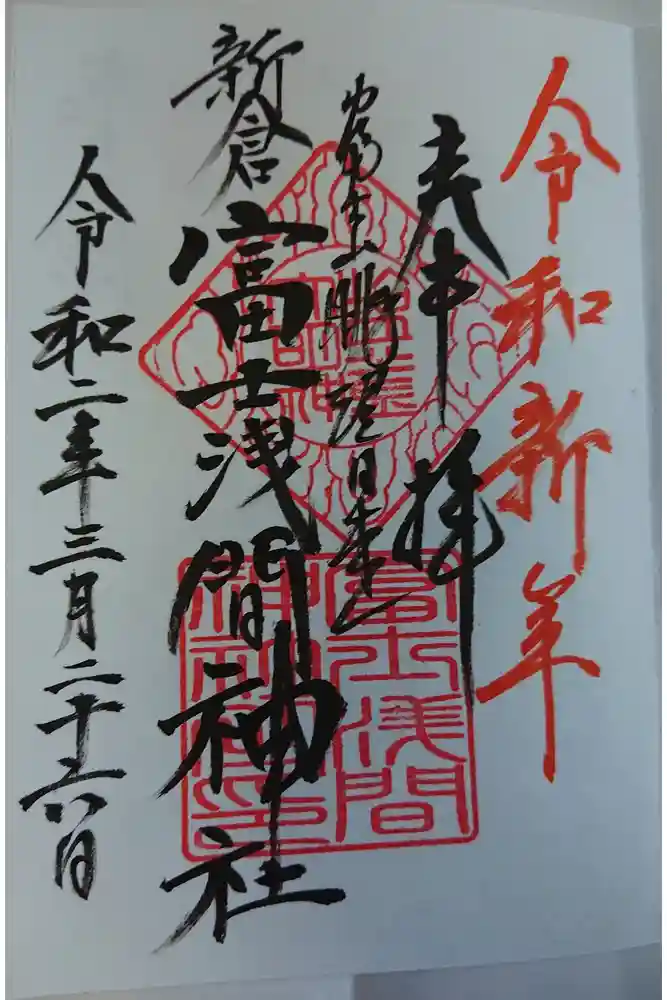 令和新年
奉拝
富士山眺望日本一
新倉
富士浅間神社
令和二年三月二十六日
富士浅間
神社